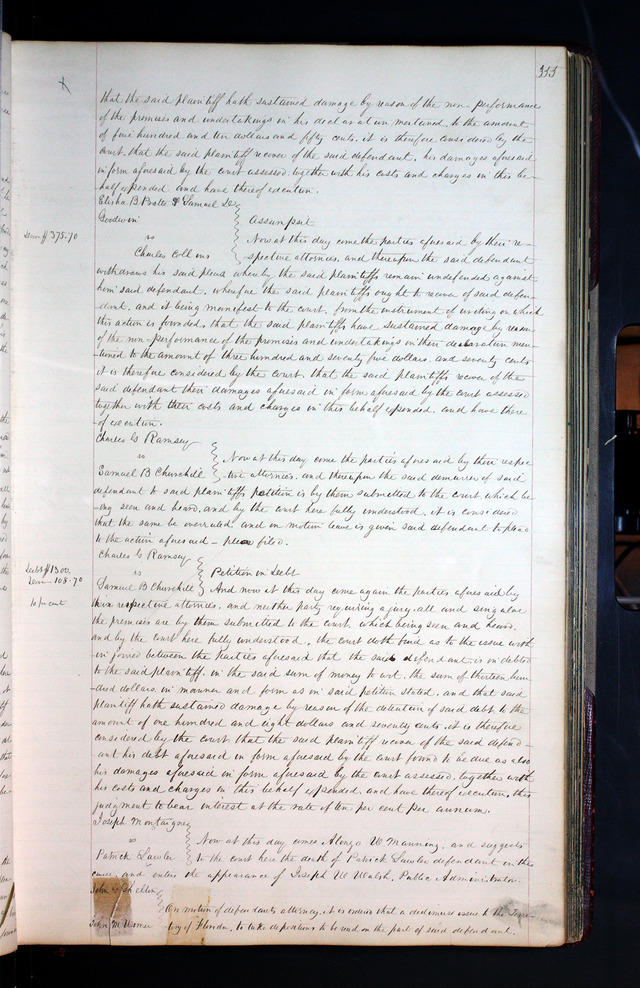 333
that the said plaintiff hath sustained damage by reason of the non-performance
of the promises and undertakings in his declaration mentioned to the amount
of five hundred and ten dollars and fifty cents. it is therefore considered by the
court. that the said plaintiff recover of the said defendant. his damages aforesaid
in form aforesaid by the court assessed. together with his costs and charges in this be-
half expended and have thereof execution.
Elisha B & Samuel
Goodwin
vs
Charles Collins
Dam $375.70
Assumpsit
Now at this day come the parties aforesaid by their re-
spective attornies. and thereupon the said defendant
withdraws his said pleas whereby the said plaintiffs remain undefended against
him said defendant. wherefore the said plaintiffs ought to recover of said defen-
dant. and it being manifest to the court. from the instrument of writing on which
this action is founded, that the said plaintiffs have sustained damage by reason
of the non-performance of the promises and undertakings in their declaration men-
tioned to the amount of three hundred and seventy five dollars. and seventy cents
it is therefore considered by the court. that the said plaintiffs recover of the
said defendant their damages aforesaid in form aforesaid by the court assessed
together with their costs and charges in this behalf expended. and have there
-of execution.
Charles G Ramsey
vs
Samuel B Churchill
Now at this day come the parties aforesaid by their respec
tive attornies. and thereupon the said demurrer of said
defendant to said plaintiffs petition is by them submitted to the court which be
-ing seen and heard, and by the court here fully understood. it is considered
that the same be overruled and on motion leave is given said defendant to plead
to the action aforesaid - plea filed.
Charles G Ramsey
vs
Samuel B Churchill
Debt $1300.
Dam - 108.70
10 pr cent
Petition in Debt
And now at this day come again the parties aforesaid by
their respective attornies. and neither party requiring a jury. all and singular
the premises are by them submitted to the court. which being seen and heard.
and by the court here fully understood, the court doth find as to the issue with
in joined between the parties aforesaid that the said defendant is indebted
to the said plaintiff. in the said sum of money to wit. the sum of thirteen hun-
dred dollars. in manner and form as in said petition stated. and that said
plaintiff hath sustained damage by reason of the detention of said debt. to the
amount of one hundred and eight dollars and seventy cents. it is therefore
considered by the court. that the said plaintiff recover of the said defend-
-ant his debt aforesaid in form aforesaid by the court found to be due as also
his damages aforesaid in form aforesaid by the court assessed. together with
his costs and charges in this behalf expended, and have thereof execution, this
judgment to bear interest at the rate of ten per cent per annum.
Joseph Montaigne
vs
Patrick Lawler
Now at this day comes Alonzo W Manning. and suggests
to the court here the death of Patrick Lawler defendant in this
cause, and enters the appearance of Joseph W Walsh, Public Administrator.
John
John M
On motion of defendants attorney. it is ordered that a dedimus issue to the Terri-
tory of Florida, to take depositions to be read on the part of said defendant.